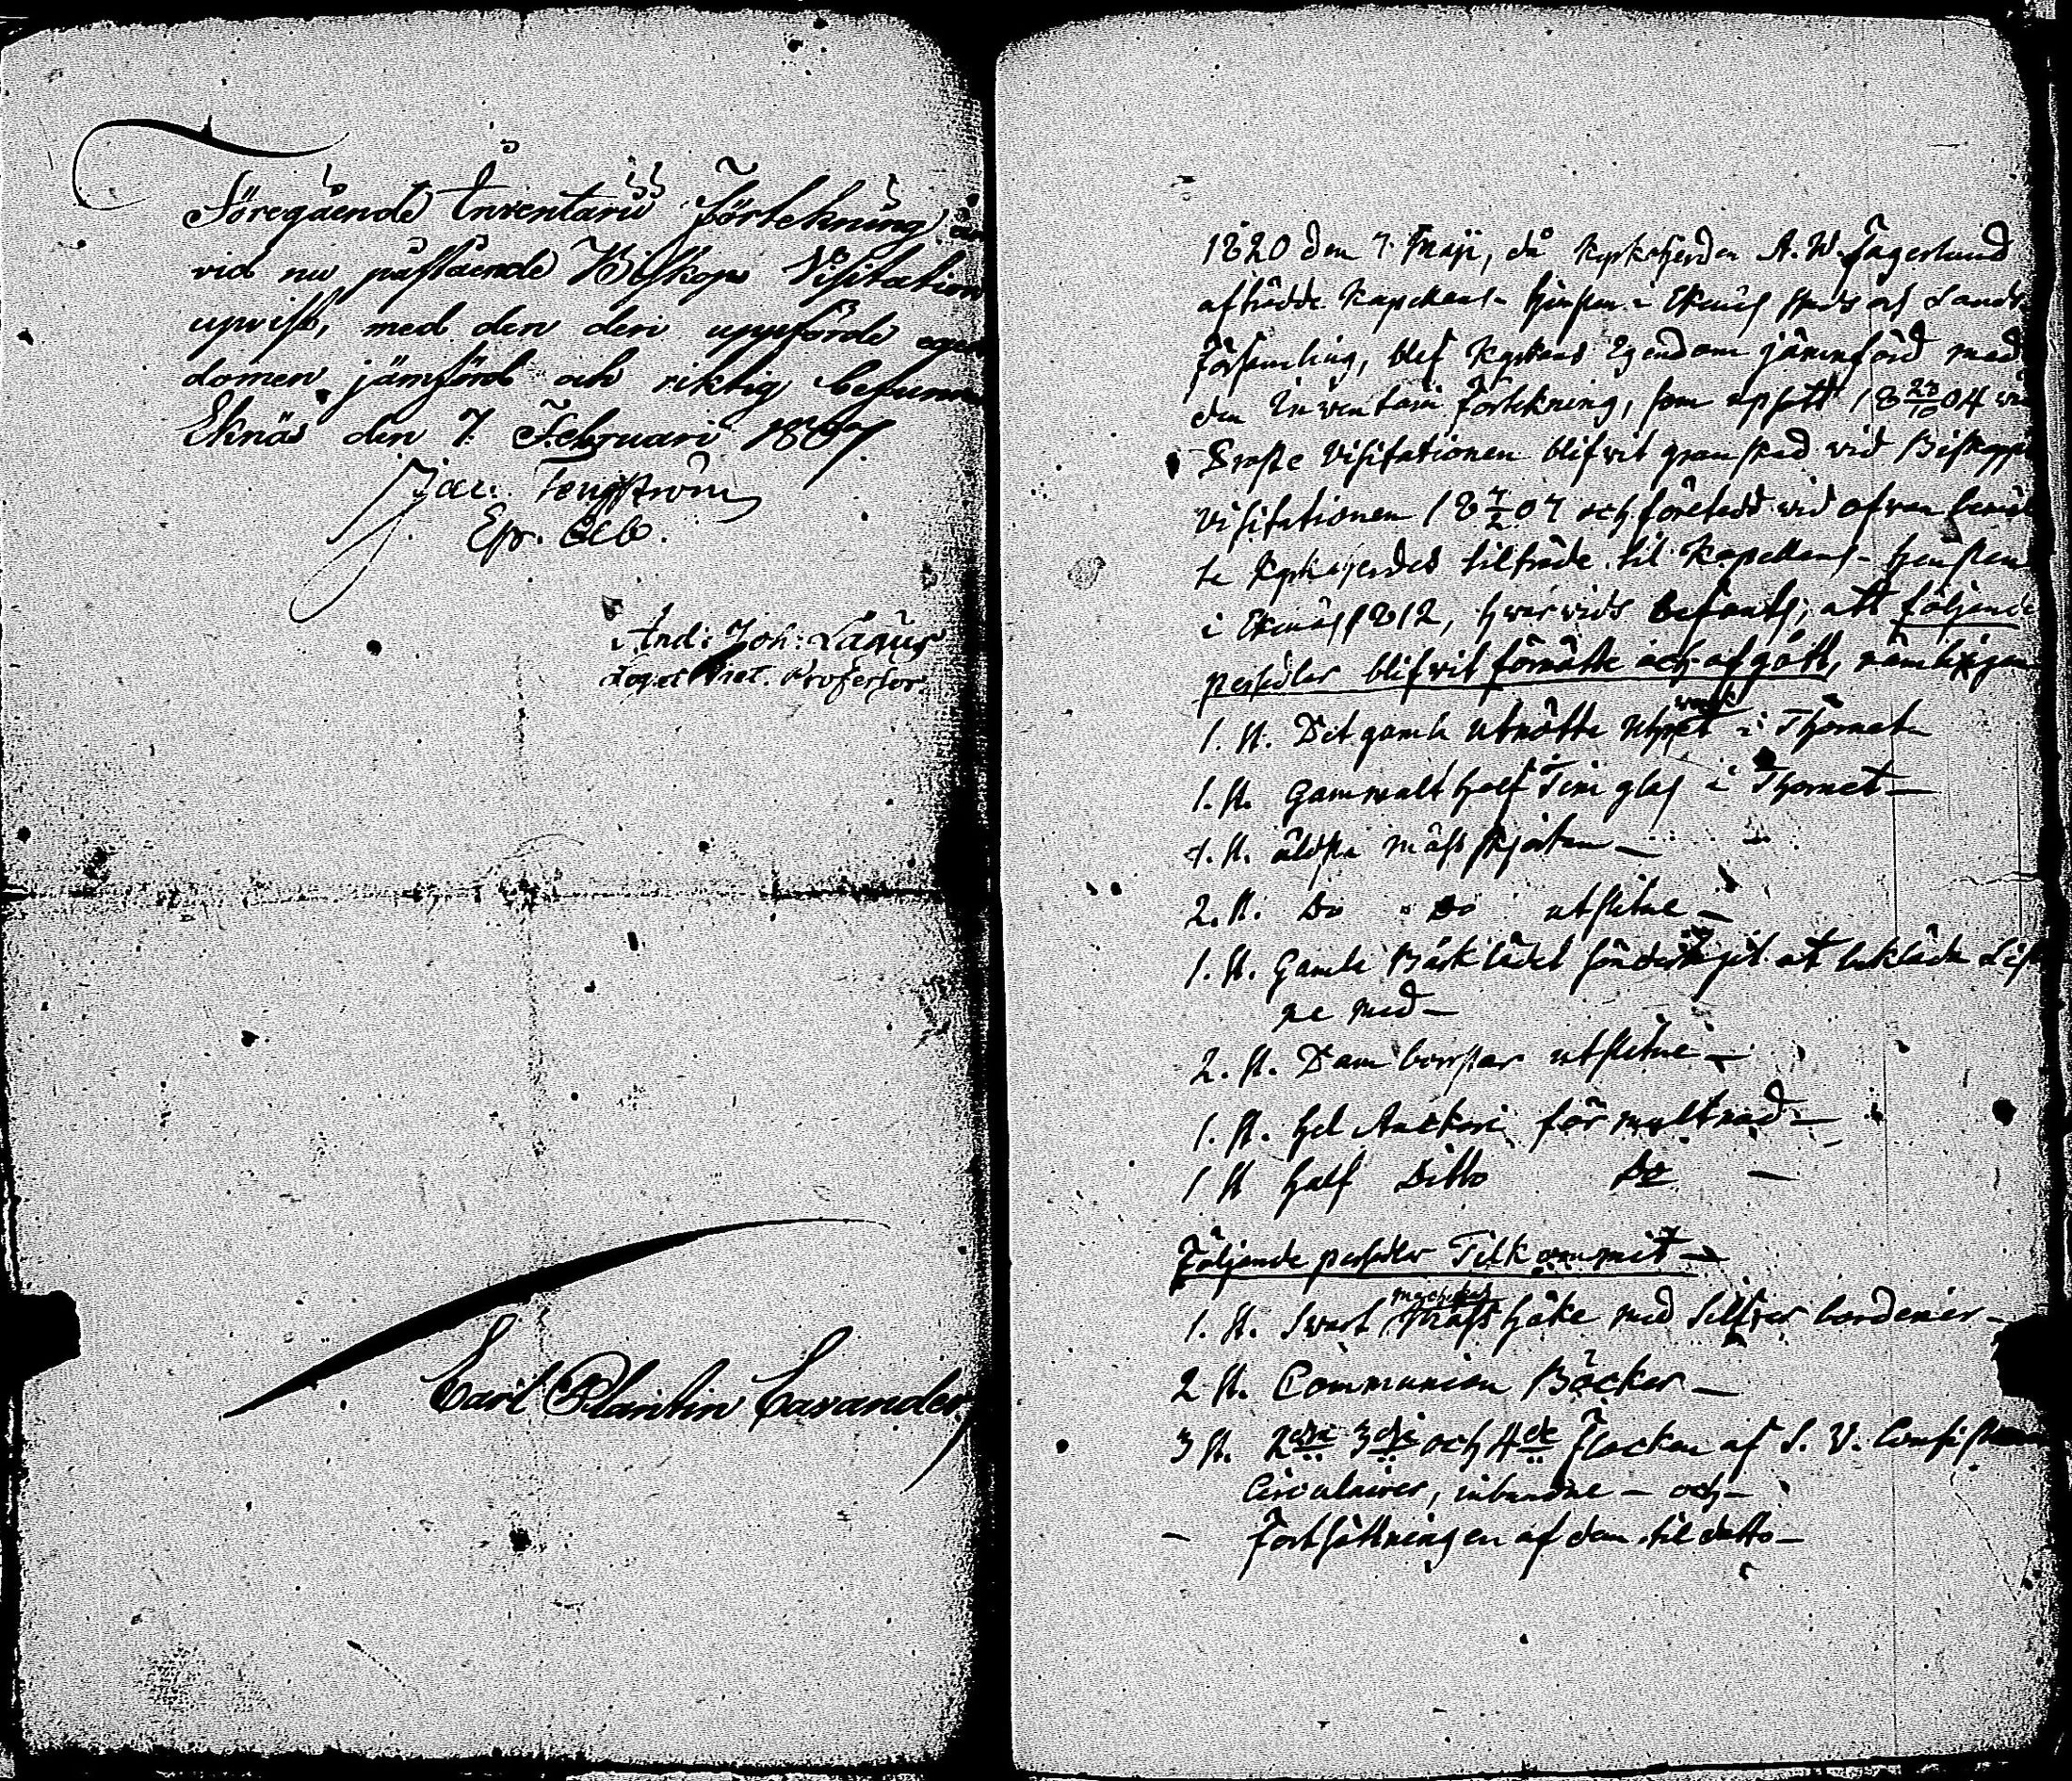 Föregående Inventarii Förtekning är
vid nu påstående Biskops Visitation
upvist, med den deri uppförde egen
domen jämförd och riktig befunnen
Eknäs den 7. Februari 1807.
Jac. Tengström
Ep. Ab.
And: Joh: Lagus
Log. et Met. Professor.
Carl Plantin Cavander
1820 den 7. Maji, då Kyrkoherden A. W. Fagerlund
afträdde Kapellans-tjensten i Ekenäs stads och Lands
församling, blef Kyrkans Egendom jämnförd med
den Inventarii förtekning, som upsatt 18 23/10 04 vid
Proste Visitationen blifvit granskad vid Biskops
Visitationen 18 7/2 07 och företedd vid ofvan bemäl
te Kyrkoherdes tilträde til Kapellans-tjensten
i Ekenäs 1812, hvarvids befants, att följande
persedlar blifvit förnötte och afgått, nämligen
1. St. Det gamla utnötte Uhrverket i Thornet
1. St. Gammalt half Tim glas i Thornet —
1. St. äldsta mäss skjortan —
2. St. Do Do utslitne —
1. St. Gamla Bårklädet at bekläda
ne med —
2. St. Dam borstar utslitne —
1. St. Hel Anckare förmultnad —
1 St Half Ditto Do —
Följande persedlar Tilkommit —
1. St. Svart Mässhake med silfver bordenier —
2 St. Communion Böcker —
3 St. 2dra 3dje och 4de Flocken af S. V. Consistorii
Circulairer, inbundne — och —
— Fortsättningen af dem til datto —